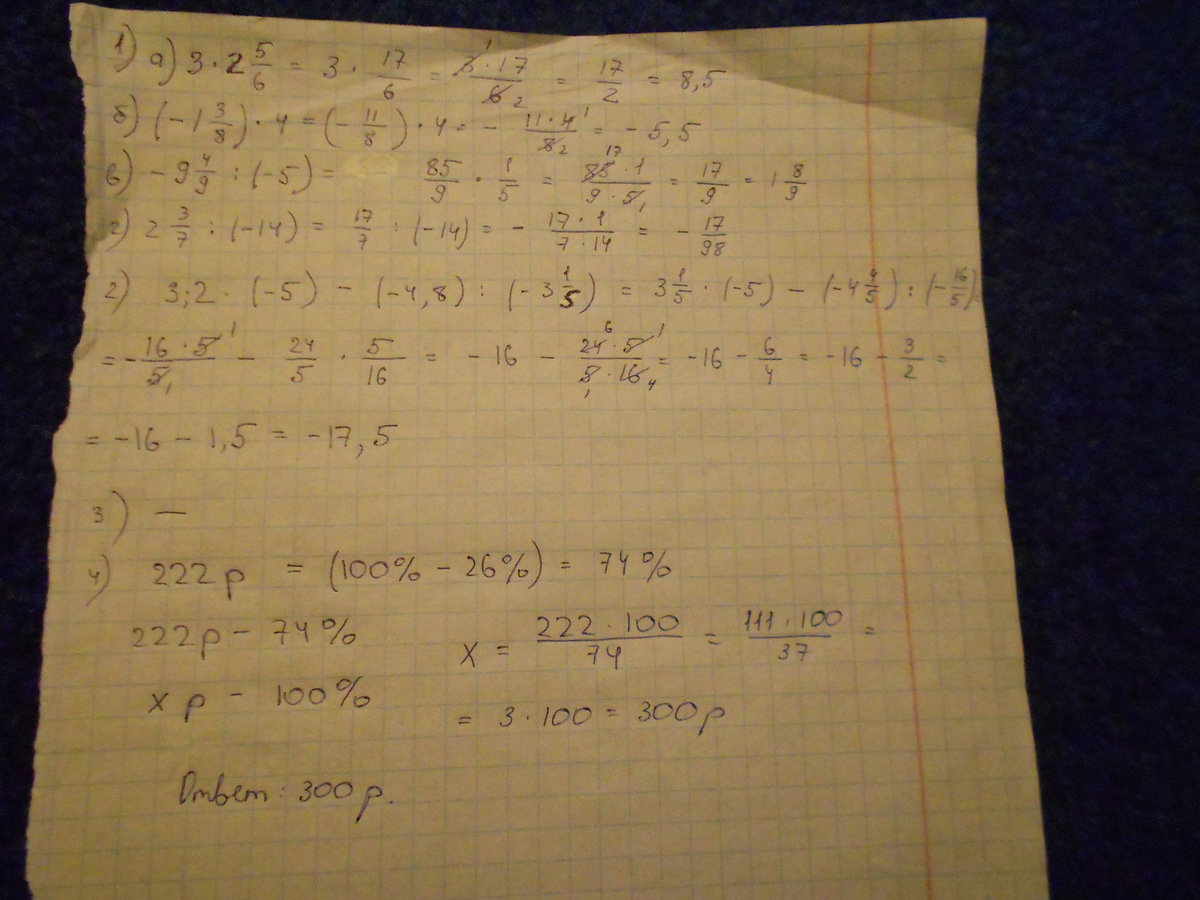 1) а) 3 · 2 5/6 = 3 · 17/6 = 3 · 17/6 1 2 = 17/2 = 8,5
б) (-1 3/8) · 4 = (- 11/8) · 4 = - 11 · 4/8 1 2 = - 5,5
в) - 9 4/9 : (-5) = 85/9 · 1/5 = 85 · 1/9 · 5 17 1 = 17/9 = 1 8/9
г) 2 3/7 : (-14) = 17/7 : (-14) = - 17 · 1/7 · 14 = - 17/98
2) 3,2 · (-5) - (-4,8) : (-3 1/5) = 3 1/5 · (-5) - (-4 4/5) : (- 16/5) =
= - 16 · 5/5 1 1 - 24/5 · 5/16 = - 16 - 24 · 5/5 · 16 6 1 1 4 = -16 - 6/4 = -16 - 3/2 =
= -16 - 1,5 = -17,5
3) —
4) 222 р = (100% - 26%) = 74%
222 р - 74%
х р - 100%
х = 222 · 100/74 = 111 · 100/37 =
= 3 · 100 = 300 р
Ответ: 300 р.